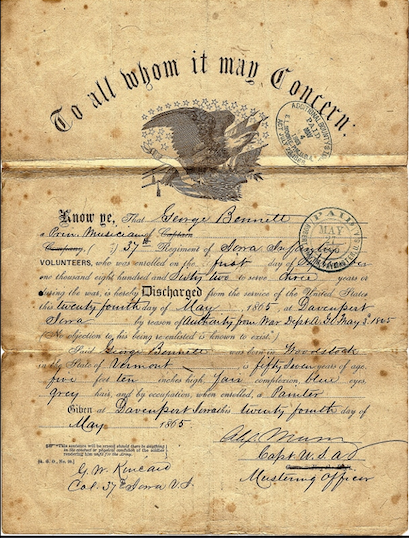 To all whom it may Concern:
ADDITIONAL BOUNTY
PAID
MAY
PAID
MAY
Know ye, That George Bennett
a Prin. Musician of Captain
Company, ( ) 37th Regiment of Iowa Infantry
VOLUNTEERS, who was enrolled on the first day of
one thousand eight hundred and Sixty two to serve three years or
during the war, is hereby Discharged from the service of the United States
this twenty fourth day of May 1865, at Davenport
Iowa by reason of authority from War Dept A.G.O. May 3d 1865
(No objection to his being re-enlisted is known to exist.)
Said George Bennett was born in Woodstock
in the State of Vermont is fifty seven years of age,
five feet ten inches high, fair complexion, blue eyes,
grey hair, and by occupation, when enrolled, a Painter
Given at Davenport Iowa this twenty fourth day of
May 1865
This sentence will be erased should there be anything
in the conduct or physical condition of the soldier
rendering him unfit for the Army.
G. W. Kincaid
Col. 37th Iowa V. I.
Capt U.S.A.
Mustering Officer